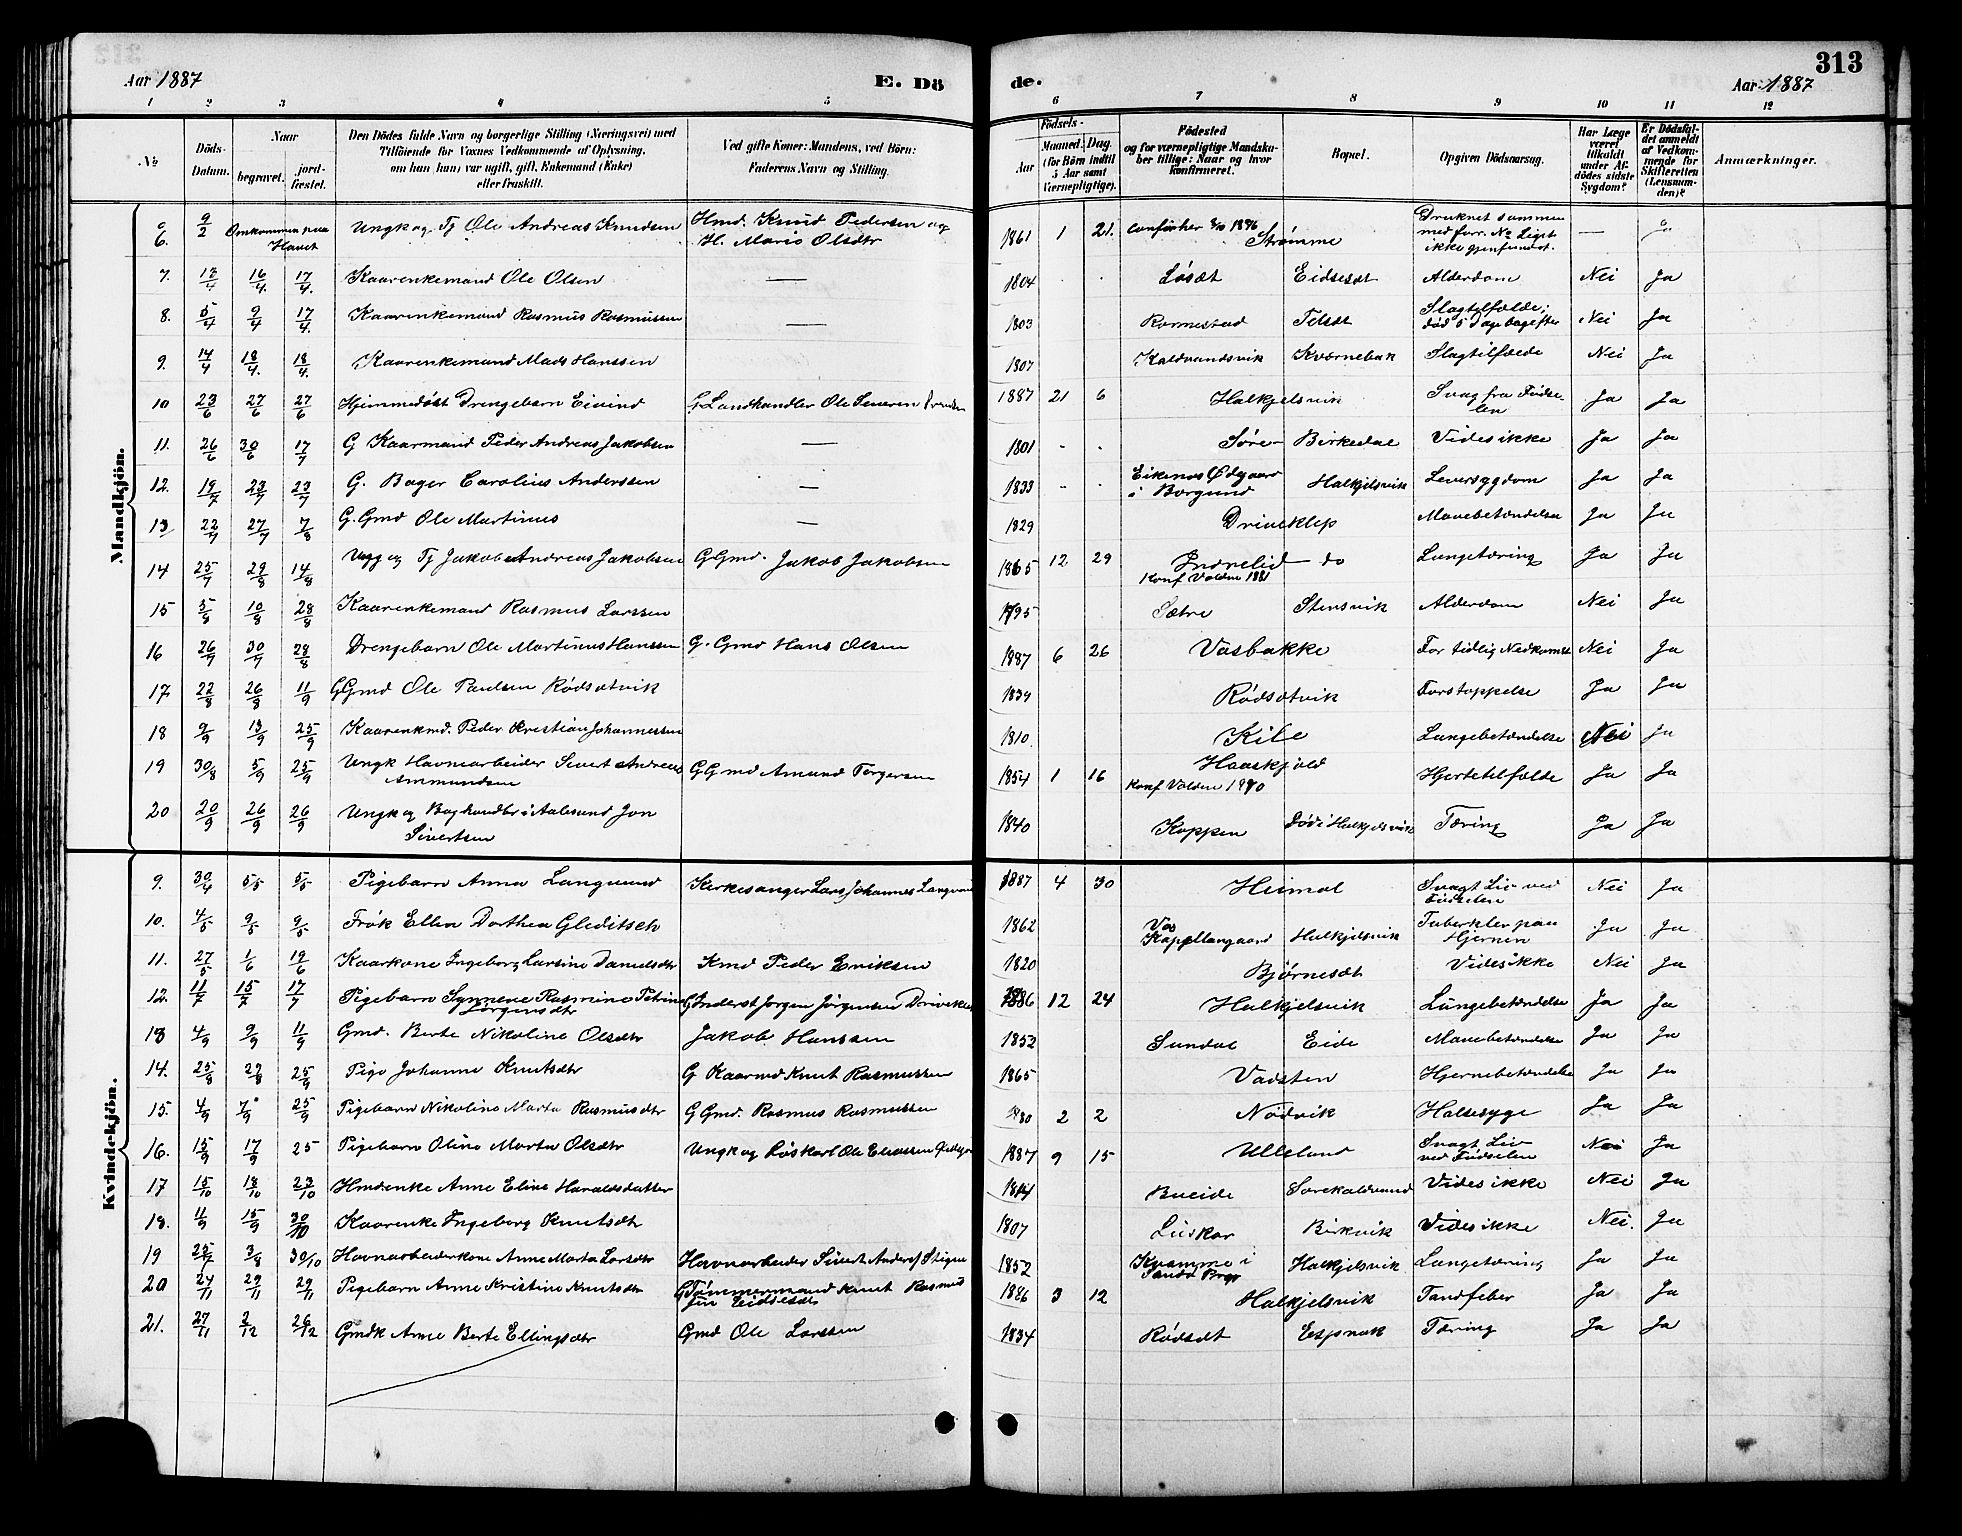 313
Aar 1887
E. Dö
de.
Aar 1887
1 2 3 4 5 6 7 8 9 10 11 12
№
Döds-Datum.
Naar
begravet.
jord-fæstet.
Den Dödes fulde Navn og borgerlige Stilling (Næringsvei) med
Tilföiende for Voxnes Vedkommende af Oplysning,
om han (hun) var ugift, gift, Enkemand (Enke)
eller fraskilt.
Ved gifte Koner: Mandens, ved Börn:
Faderens Navn og Stilling.
Födsels-
Aar
Maaned. Dag
(for Börn indtil
5 Aar samt
Værnepligtige).
Födested
og for værnepligtige Mandska-
ber tillige: Naar og hvor
konfirmeret.
Bopæl.
Opgiven Dödsaarsag.
Har Læge
været
tilkaldt
under Af-
dödes sidste
Sygdom?
Er Dödsfal-
det anmeldt
af Vedkom-
mende for
Skifteretten
(Lensman-
den)?
Anmærkninger.
Mandkjön.
6. 9/2 Omkommen paa Havet Ungk og Fj Ole Andreas Knudsen Hmd. Knud Pedersen og H. Marie Olsdtr 1861 1 21. Strømme Druknet sammen med forr. No Liget ikke gjenfundet. —
7. 13/4 16/4 17/4. Kaarenkemand Ole Olsen — 1804 Løsæt Eidsesæt Alderdom Nei Ja
8. 5/4 9/4 17/4. Kaarenkemand Rasmus Rasmussen — 1803 Romestad Tilsæt Slagtilfælde; død 5 Dage bagefter Nei Ja
9. 14/4 18/4. 18/4. Kaarenkemand Mads Hanssen 1807 Kaldvandsvik Kværnebak Slagtilfælde Nei Ja
10 23/6 27/6 27/6 Hjemmedøbt Drengebarn Eivind G Landhandler Ole Severin 1887 21 6 Halkjelsvik Svag fra Fødselen Ja Ja
11. 26/6 30/6 17/7 G Kaarmand Peder Andreas Jakobsen — 1801 - Søre- Birkedal Vides ikke Ja Ja
12. 19/7 23/7 23/7 G. Bager Carolius Anderssen — 1833 - Eikenos Ødegaard i Borgund Halkjelsvik Leversygdom Ja Ja
13 22/7 27/7 7/8 G. Gmd Ole Martinus — 1829 Driveklep Mavebetændelse Ja Ja
14 25/7 29/8 14/8 Ungk og Fj Jakob Andreas Jakobsen G Gmd. Jakob Jakobsen 1865 12 29 Indrelid Konf Volden 1881 do Lungetæring Ja Ja
15 5/8 10/8 28/8 Kaarenkemand Rasmus Larssen 1795 Sætre Stensvik Alderdom Nei Ja
16 26/7 30/7 28/8 Drengebarn Ole Martinus Hanssen G. Gmd Hans Olsen 1887 6 26 Vasbakke For tidlig Nedkomst Nei Ja
17 22/8 26/8 11/9 G Gmd Ole Paulsen Rødsætvik 1834 Rødsætvik Forstoppelse Ja Ja
18 9/9 13/9 25/9 Kaarenkmd. Peder Kristian Johannessen 1810. Kile Lungebetændelse Nei Ja
19 30/8 5/9 25/9 Ungk Havnearbeider Sivert Andreas Ammundsen G Gmd Amund Torgersen 1854 1 16 Haaskjold Konf Volden 1870 Hjertetilfælde Ja Ja
20 20/9 26/9 26/9 Ungk og Boghandler i Aalesund Jon Sivertsen 1840 Koppen død i Halkjelsvik Tæring Ja Ja
Kvindekjön.
9. 30/4 5/5 5/5 Pigebarn Anna Langvand Kirkesanger Lars Johannes Langvand 1887 4 30 Heimal Svagt Liv ved Fødselen Nei Ja
10. 4/5 9/5 9/5 Frøk Ellen Dorthea Gleditsch 1862 Vos Kapellangaard Halkjelsvik Tuberkler paa Hjernen Ja Ja
11. 27/5 1/6 19/6 Kaarkone Ingeborg Larsine Danielsdtr Kmd Peder Eriksen 1820 Bjørnesæt Vides ikke Nei Ja
12. 11/7 15/7 17/7 Pigebarn Synneve Rasmine Petrine Jørgensdtr G Inderst Jørgen Jørgensen Driveklep 1886 12 24 Halkjelsvik Lungebetændelse Ja Ja
13 4/9 9/9 11/9 Gmd. Berte Nikoline Olsdtr Jakob Hanssen 1852 Sundal Eide Mavebetændelse Ja Ja
14. 25/8 29/8 25/9 Pige Johanne Knutsdtr G Kaarmd Knut Rasmussen 1865 Vadsten Hjernebetændelse Ja Ja
15. 4/9 7/9 25/9 Pigebarn Nikoline Marta Rasmusdtr G Gmd. Rasmus Rasmussen 1880 2 2 Nødvik Halsesyge Ja Ja
16. 15/9 17/9 25 Pigebarn Oline Marta Olsdtr Ungk og Løskarl Ole Eliassen 1887 9 15 Ulleland Svagt Liv ved Fødselen Nei Ja
17 15/10 18/10 23/10 Hmdenke Anne Eline Haraldsdatter 1814 Bueide Sørekaldvand Vides ikke Nei Ja
18. 11/9 15/9 30/10 Kaarenke Ingeborg Knutsdtr 1807 Leiskar Birkvik Vides ikke Nei. Ja
19 25/7 3/8 30/10 Havnearbeiderkone Anne Marta Larsdtr Havnearbeider Sivert Anders 1852 Kvamme i Sande Halkjelsvik Lungetæring Ja Ja
20 24/11 29/11 29/11 Pigebarn Anne Kristine Knutsdtr G Tømmermand Knut Rasmus Eidsesæt 1886 3 12 Halkjelsvik Tandfeber Ja Ja
21. 27/11 2/12 26/12 Gmdk Anne Berte Ellingsdtr Gmd Ole Larssen 1834 Rødsæt Espenak Tæring Ja Ja